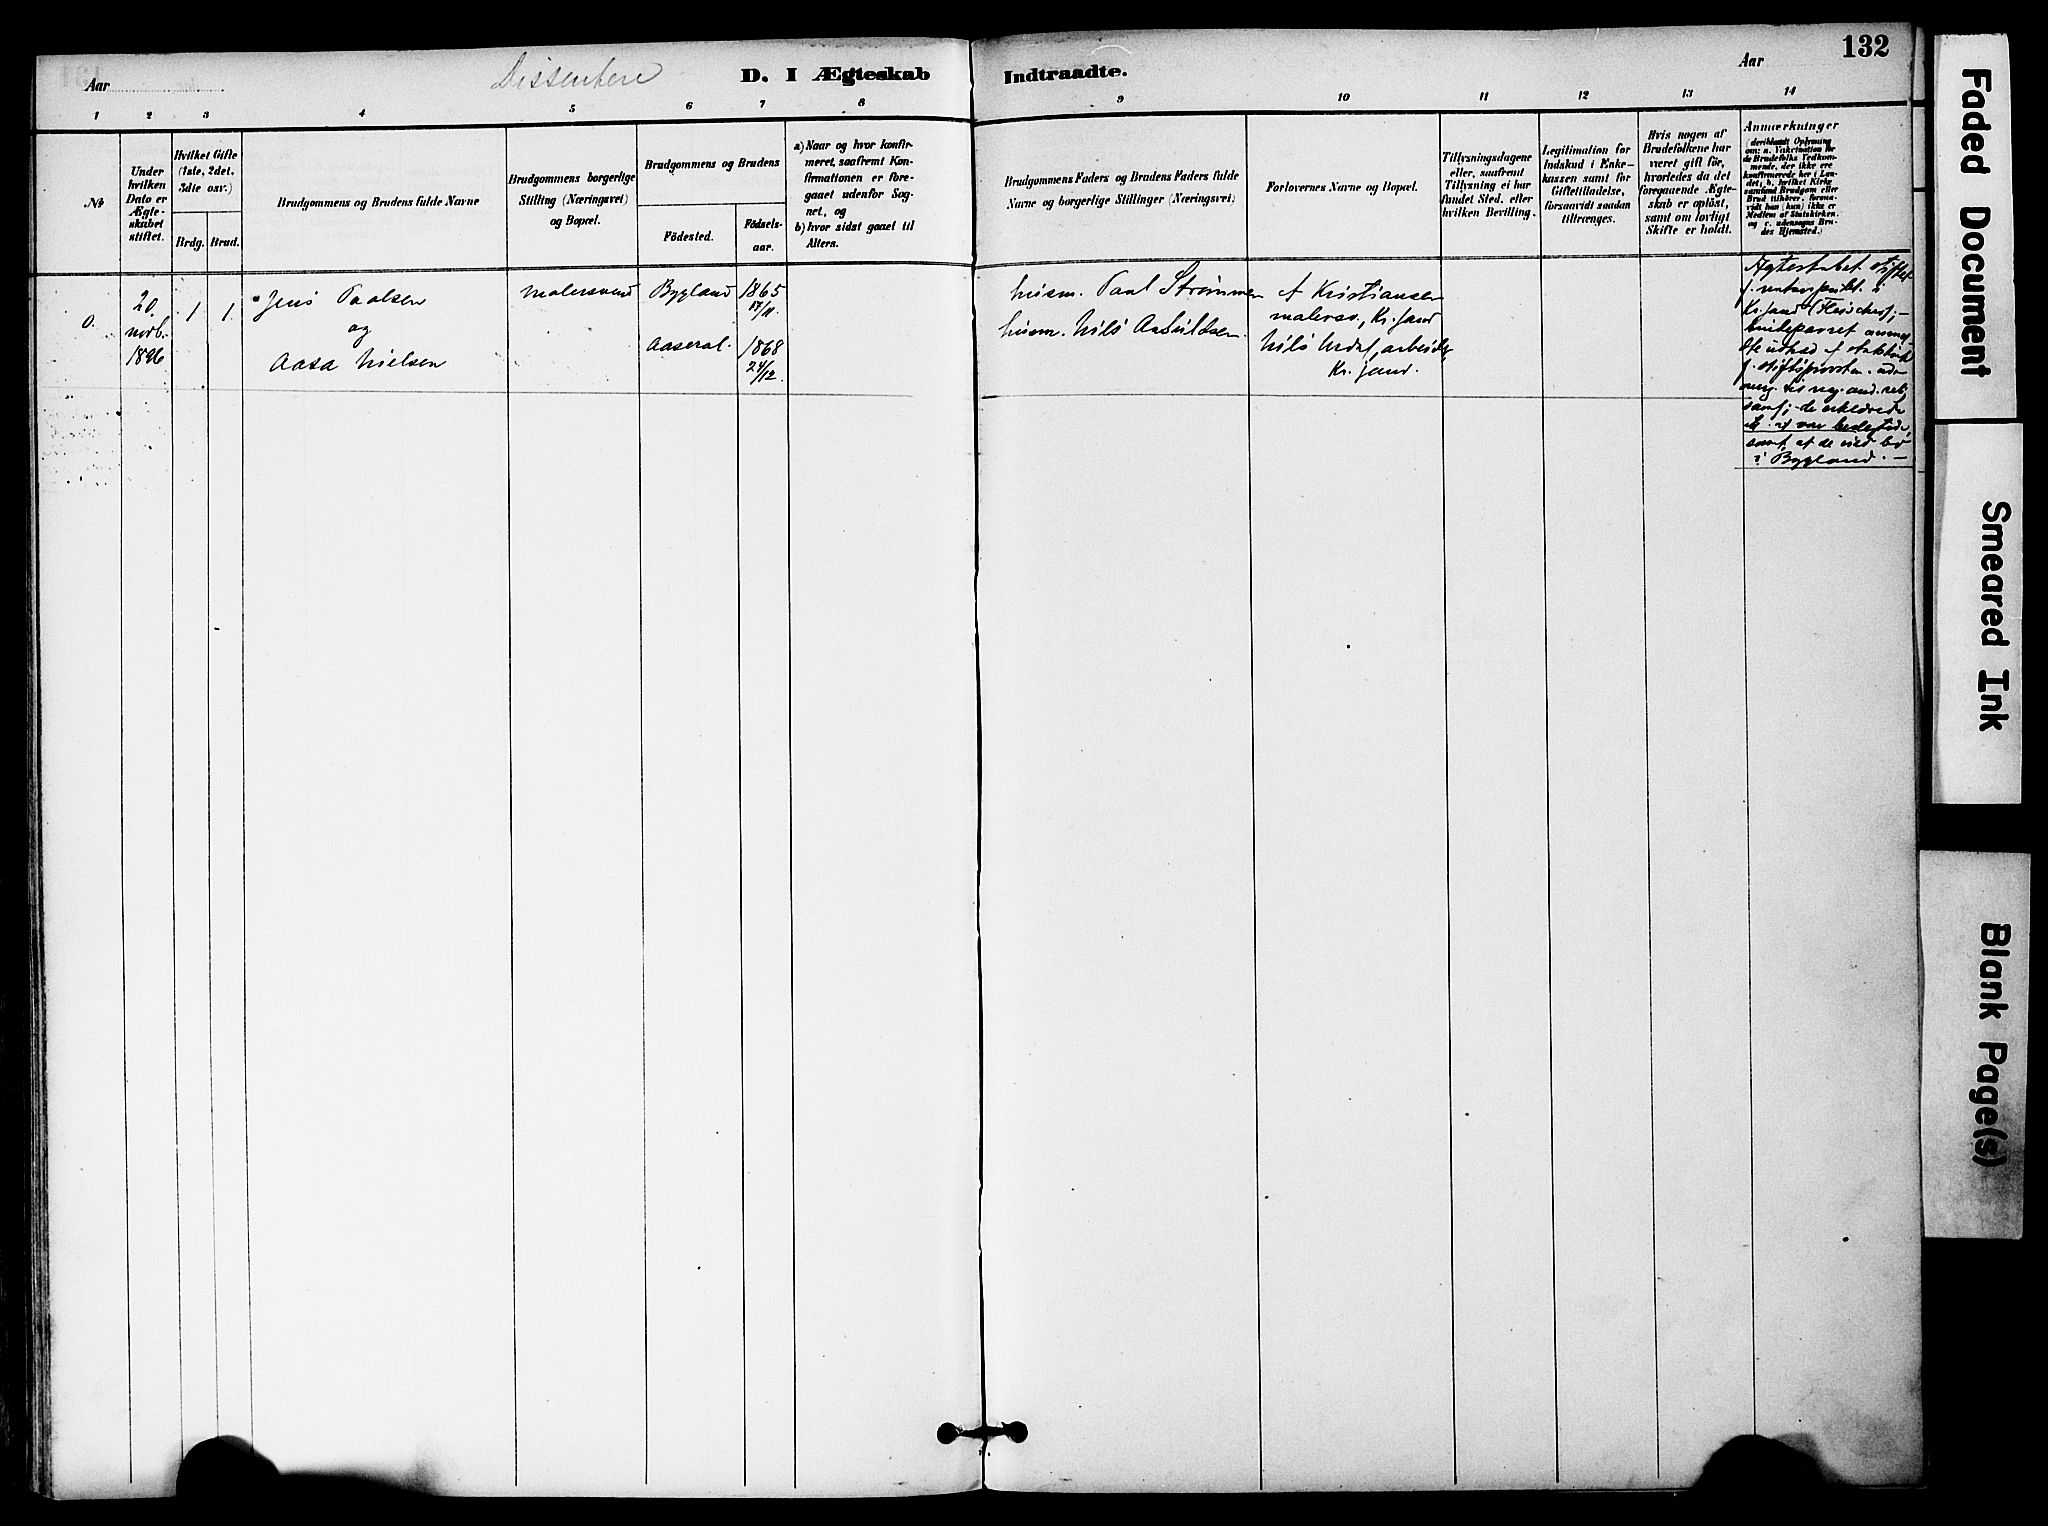 Aar
Dissentere
D. I Ægteskab
Indtraadte.
Aar
132
1 2 3 4 5 6 7 8 9 10 11 12 13 14
№
Under
hvilken
Dato er
Ægte-
skabet
stiftet.
Hvilket Gifte
(1ste, 2det,
3die osv.)
Brdg. Brud.
Brudgommens og Brudens fulde Navne
Brudgommens borgerlige
Stilling (Næringsvei)
og Bopæl.
Brudgommens og Brudens
Födested.
Födsels-
aar.
a) Naar og hvor konfir-
meret, saafremt Kon-
firmationen er fore-
gaaet udenfor Sog-
net, og
b) hvor sidst gaaet til
Alters.
Brudgommens Faders og Brudens Faders fulde
Navne og borgerlige Stillinger (Næringsvei)
Forlovernes Navne og Bopæl.
Tillysningsdagene
eller, saafremt
Tillysning ei har
fundet Sted, efter
hvilken Bevilling.
Legitimation for
Indskud i Enke-
kassen samt for
Giftetilladelse,
forsaavidt saadan
tiltrænges.
Hvis nogen af
Brudefolkene har
været gift för,
hvorledes da det
foregaaende Ægte-
skab er oplöst,
samt om lovligt
Skifte er holdt.
Anmærkninger
(deriblandt Oplysning
om: a. Vakcination for
de Brudefolks Vedkom-
mende, der ikke ere
konfirmerede her i Lan-
det; b. hvilket Kirke-
samfund Brudgom eller
Brud tilhörer, forsaa-
vidt han (hun) ikke er
Medlem af Statskirken,
og c. udensogns Bru-
des Hjemsted.)
0.
20
novb.
1896
1 1
Jens Paalsen
og
Aasa Nielsen
malersvend
Bygland
1865
17/11
Aaseral.
1868
24/12
husm. Paul Strømmen
husm. Nils Aasuldsen
A Kristiansen
malersv., Kr.sand
Nils Urdal, arbeider
Kr.sand.
Ægteskabet stiftet
f. notarpubl. i
Kr.sand (Fleischer);
brudeparret anmeg
te udtræd af statskirk
f. stiftsprovsten. uden
overg. til nog. and. rel.
samf; de erklærede
samt at de vild bo
i Bygland. —